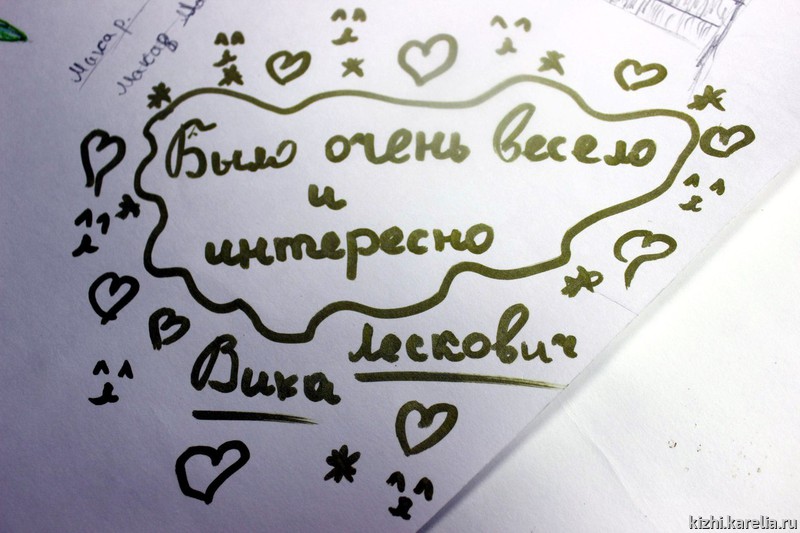 Макар.
Макар
Было очень весело
и
интересно
Вика Лескович
kizhi.karelia.ru